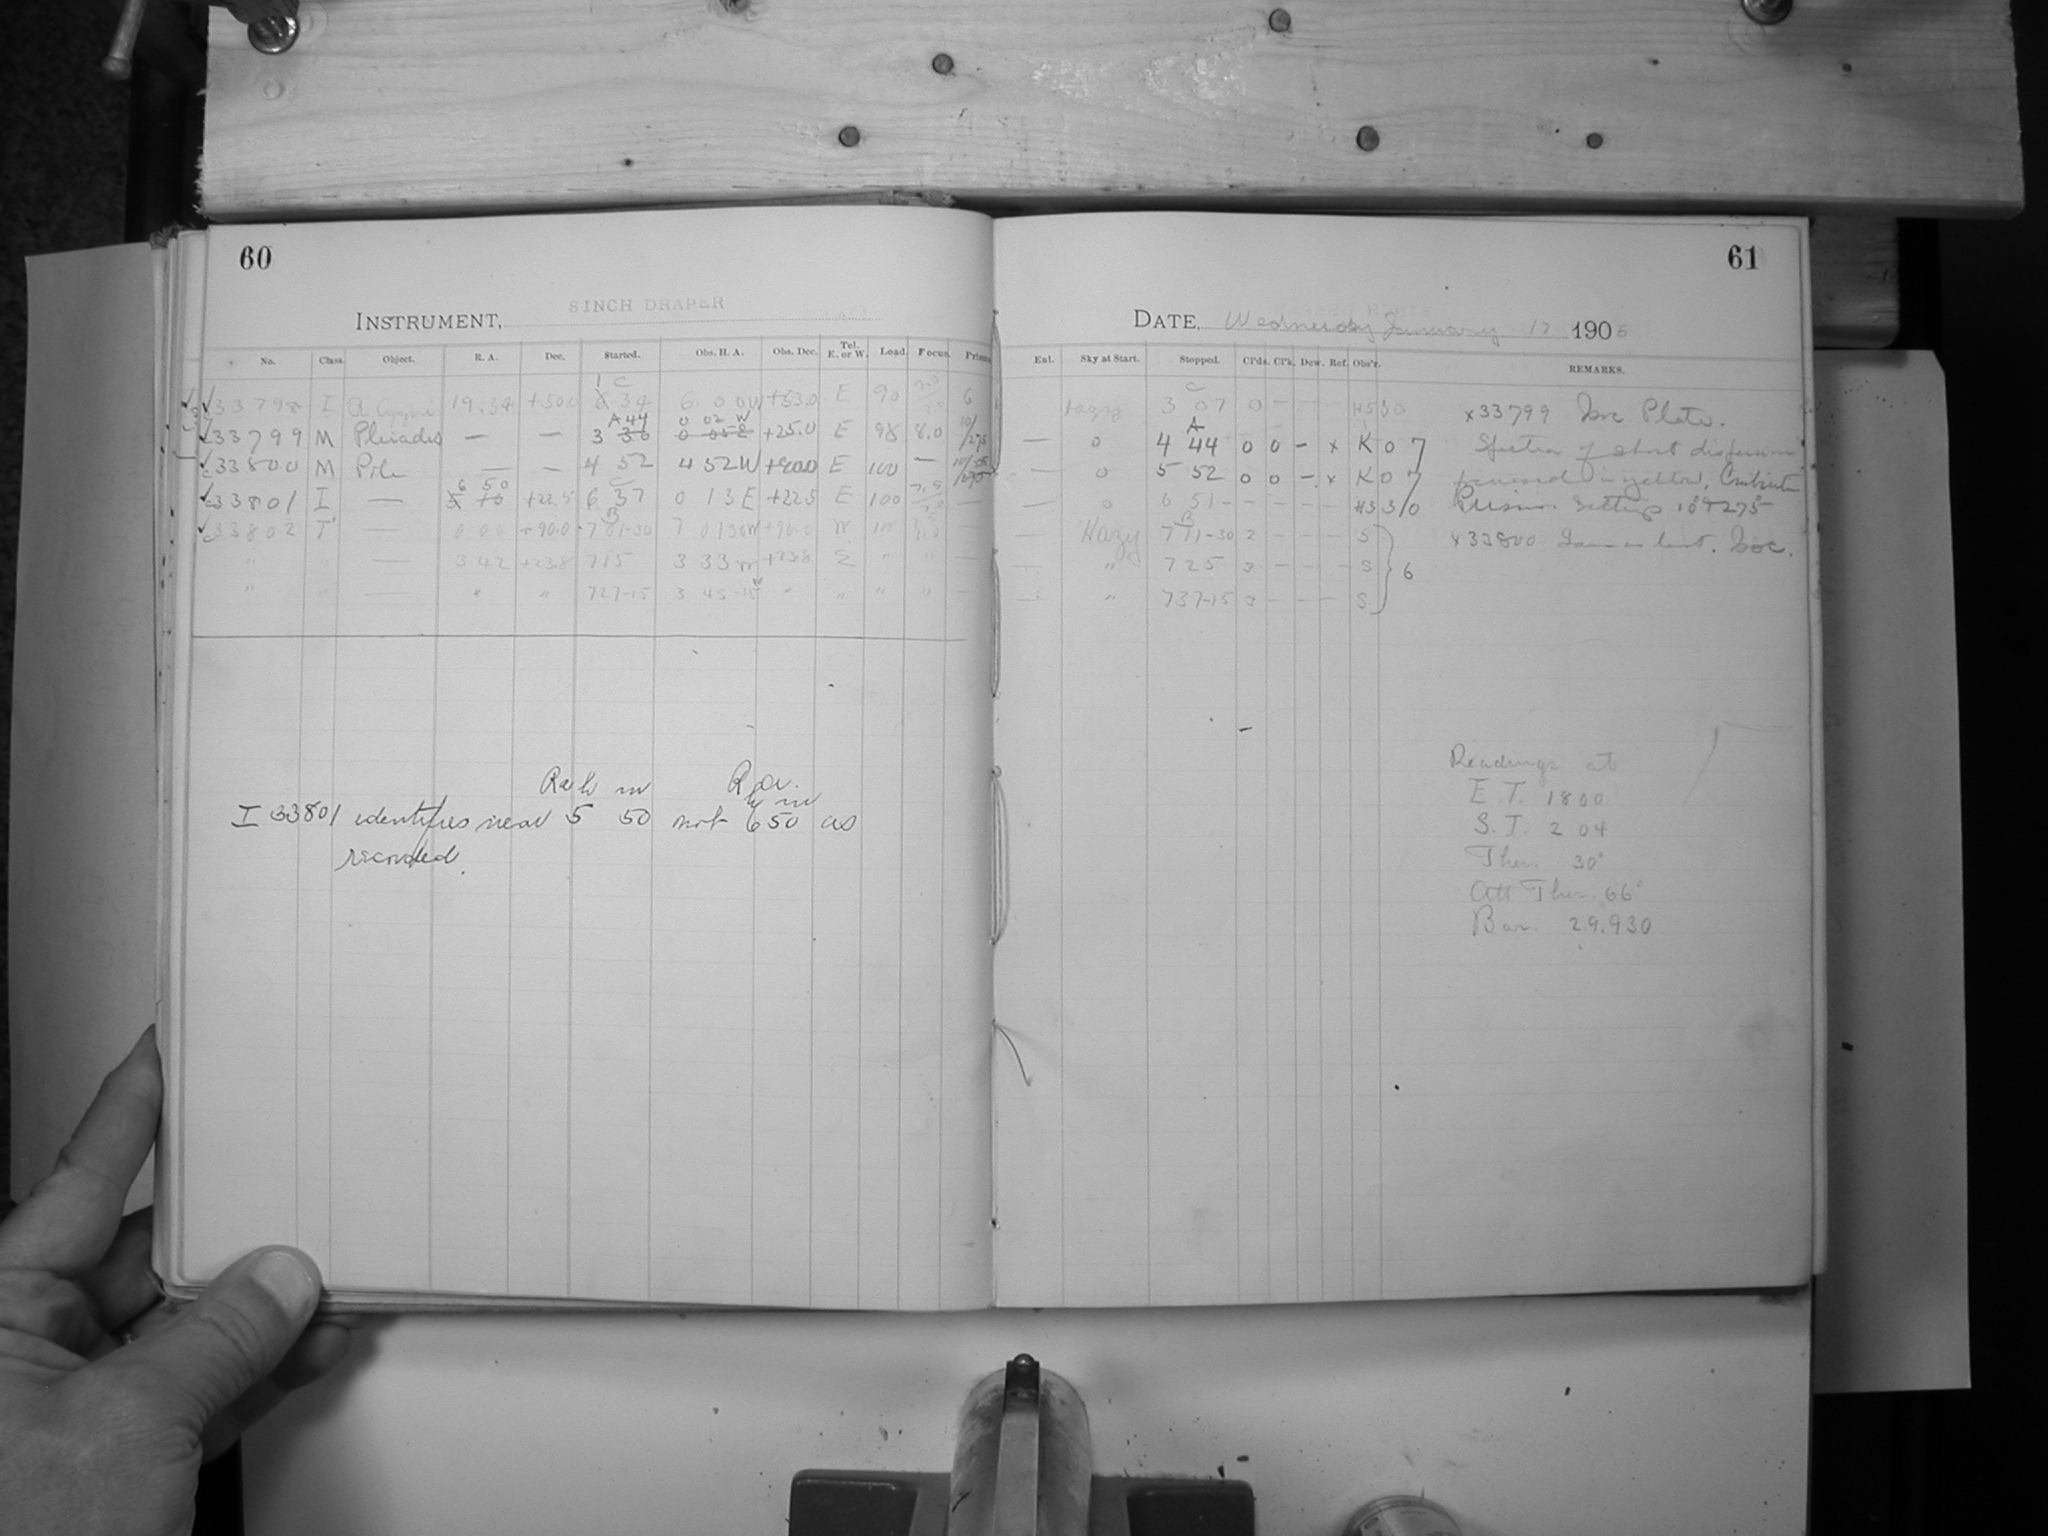 60
8 INCH DRAPER
INSTRUMENT,
No. Class. Object. R. A. Dec. Started. Obs. H. A. Obs. Dec. Tel. E. or W. Load. Focus.
33798 I R Cygni 19.34 +50.0 1 34 C 6 00W +53.0 E 90 6
33799 M Pleiades — — A 44 3 36 0 02 W +25.0 E 98 8.0 10/275
33800 M Pole — — 4 52 4 52W +90.0 E 100 —
33801 I — 6 50 +22.5 6 37 C 0 13E +22.5 E 100 —
33802 T — 0 00 +90.0 7 01-30 B 7 0130W +90.0 W 100
" " — 3 42 +23.8 715 3 33W +23.8 E " " —
" " — " " 727-15 3 45-15W " " " " —
R a h m R. a. h m
I 33801 identifies near 5 50 not 6 50 as
recorded.
61
DATE, Wednesday January 17 1906
Ent. Sky at Start. Stopped. Cl'ds. Cl'k. Dew. Ref. Obs'r. REMARKS.
Hazy 3 07 C 0 - - - x33799 Iso Plate.
— 0 4 44 A 0 0 - x K 0 7 Spectra of short dispersion
— 0 5 52 0 0 - x K 0 7 in yellow, Combination
0 6 51 - - - - H 3 3/0 Prism. Settings 10° & 275°
— Hazy 7 11-30 B 2 - - - S x33800 Same as last. Iso.
— " 7 25 3 - - - S 6
— " 737-15 3 - - - S
Readings at
E.T. 1800
S.T. 2 04
Ther. 30°
Att Ther. 66°
Bar. 29.930